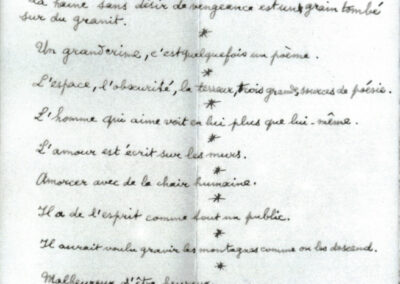 La haine sans désir de vengeance est un grain tombé
sur du granit.
*
Un grand crime, c'est quelquefois un poème.
*
L'espace, l'obscurité, la terreur, trois grandes sources de poésie.
*
L'homme qui aime voit en lui plus que lui-même.
*
L'amour est écrit sur les murs.
*
Amorcer avec de la chair humaine.
*
Il a de l'esprit comme tout un public.
*
Il aurait voulu gravir les montagnes comme on les descend.
*
Malheureux d'être heureux